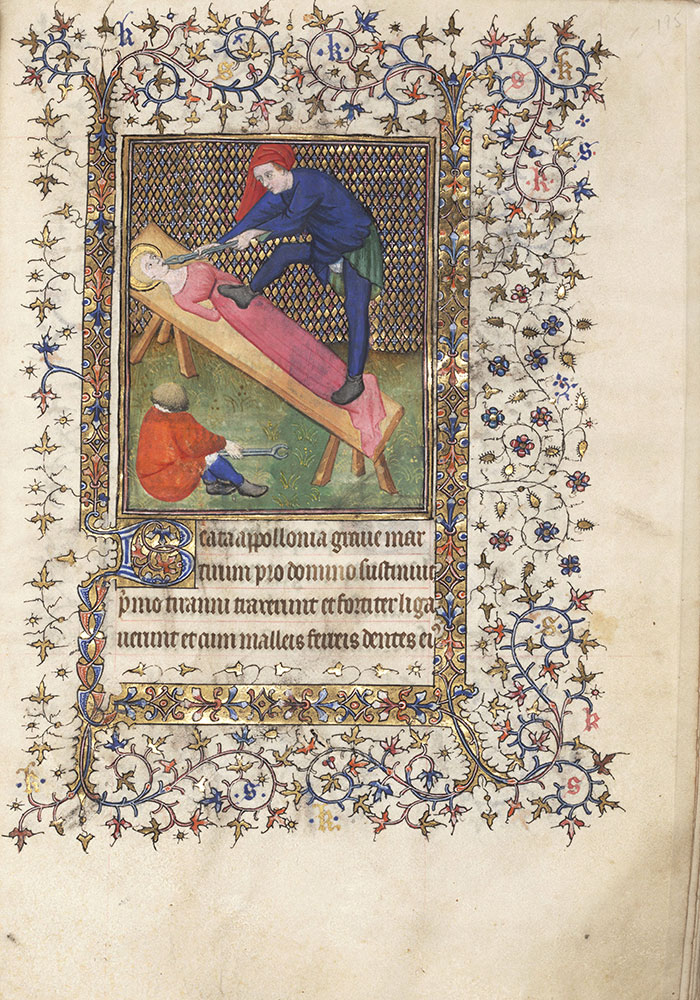 Beata appollonia graue mar
tirium pro domino sustinuit
p̄mo tiranni traxerunt et fortiter liga
uerunt et cum malleis ferreis dentes ei⁹